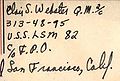 S. Webster Q.M. 3/c
313-48-95
U.S.S. LSM 82
c/o F.P.O.
San Francisco, Calif.